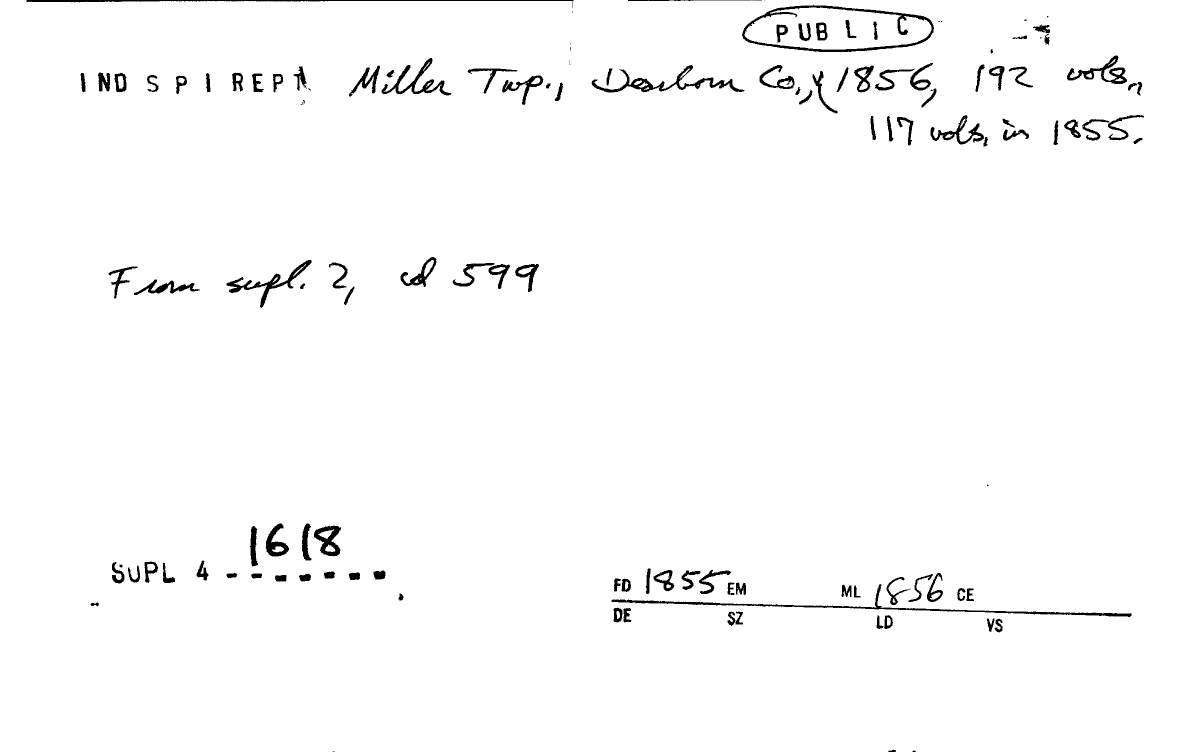 PUBLIC
INDSPIREPT Miller Twp., Dearborn Co., 1856, 192 vols,
117 vols, in 1855.
From supl. 2, cd 599
1618
SUPL 4
FD 1855 EM ML 1856 CE
DE SZ LD VS